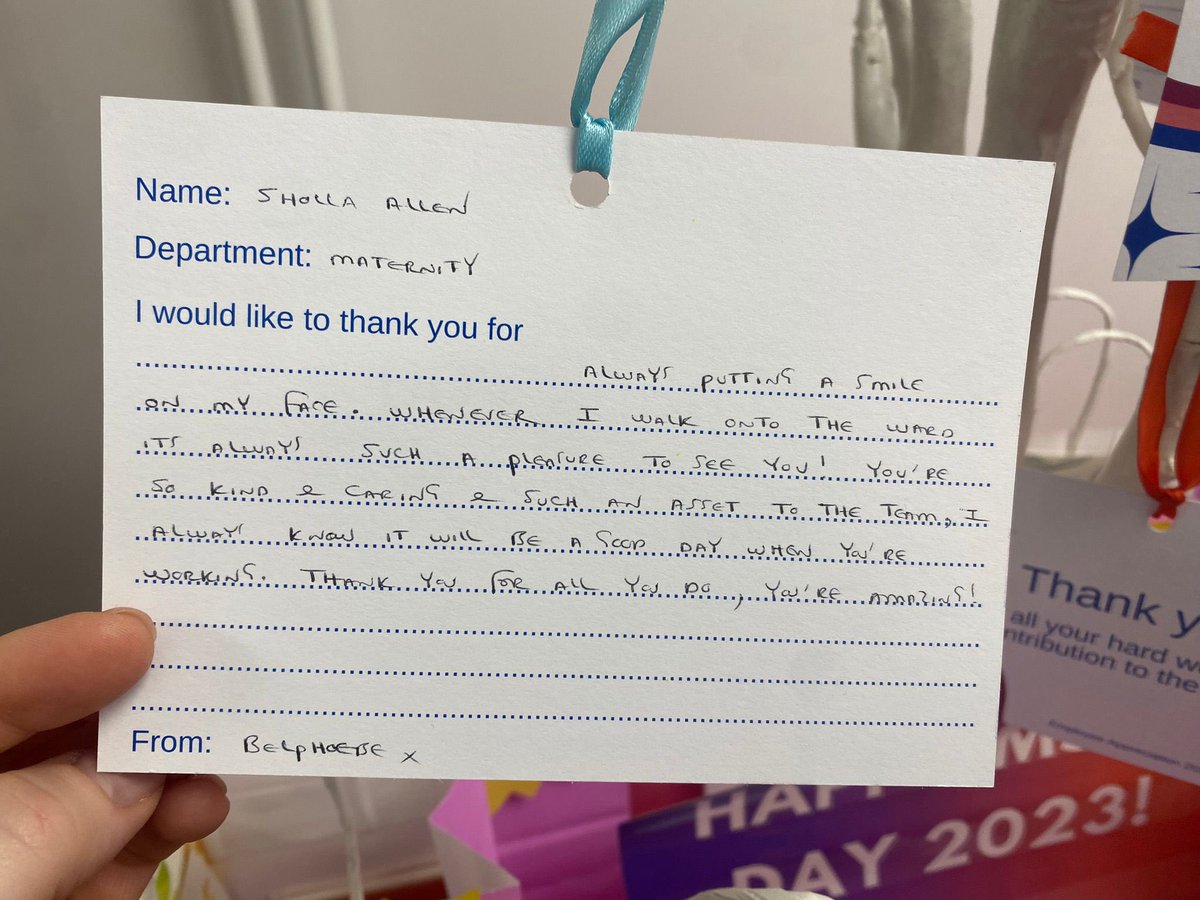 Name: SHOLLA ALLEN
Department: MATERNITY
I would like to thank you for
ALWAYS PUTTING A SMILE
ON MY FACE. WHENEVER I WALK ONTO THE WARD
ITS ALWAYS SUCH A PLEASURE TO SEE YOU! YOU'RE
SO KIND & CARING & SUCH AN ASSET TO THE TEAM, I
ALWAYS KNOW IT WILL BE A GOOD DAY WHEN YOU'RE
WORKING. THANK YOU FOR ALL YOU DO, YOU'RE AMAZING!
From: BELPHOEBE x
Thank y
all your hard w
ntribution to the
Employee Appreciation 20
HAP
DAY 2023!